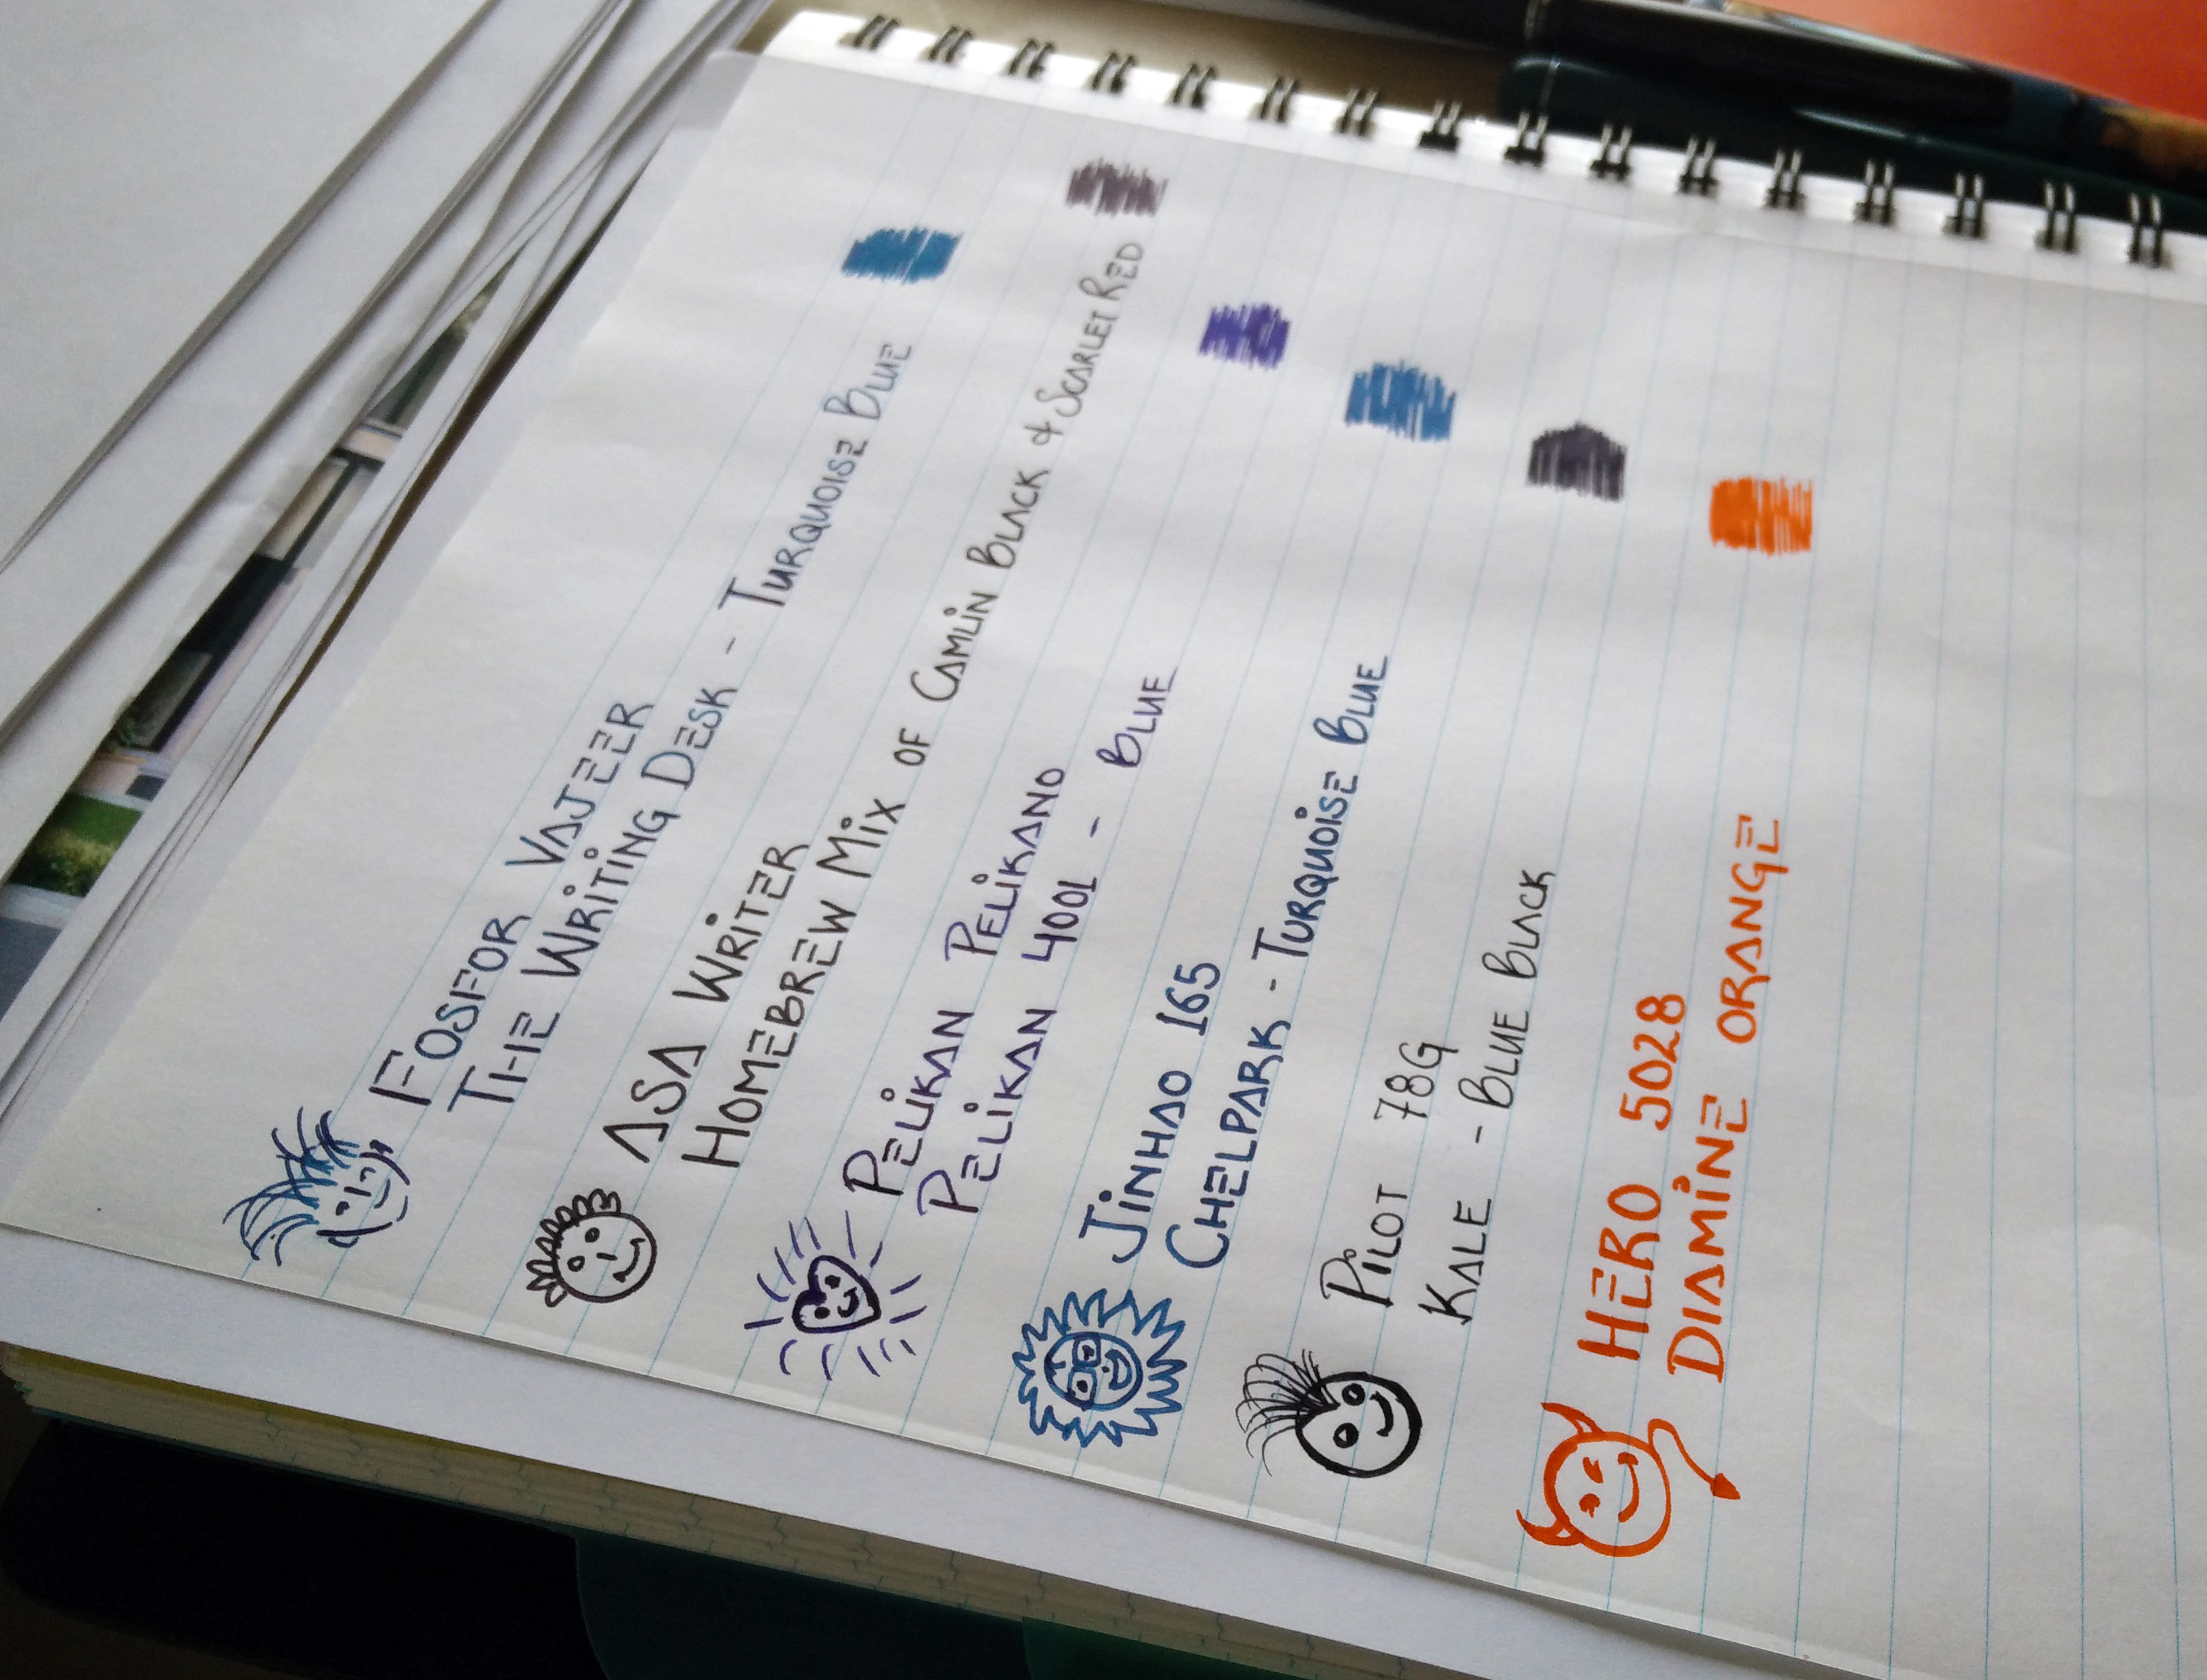 FOSFOR VAJEER
THE WRITING DESK - TURQUOISE BLUE
ASA WRITER
HOMEBREW MIX OF CAMLIN BLACK & SCARLET RED
PELIKAN PELIKANO
PELIKAN 4001 - BLUE
JINHAO 165
CHELPARK - TURQUOISE BLUE
PILOT 78G
KALE - BLUE BLACK
HERO 5028
DIAMINE ORANGE